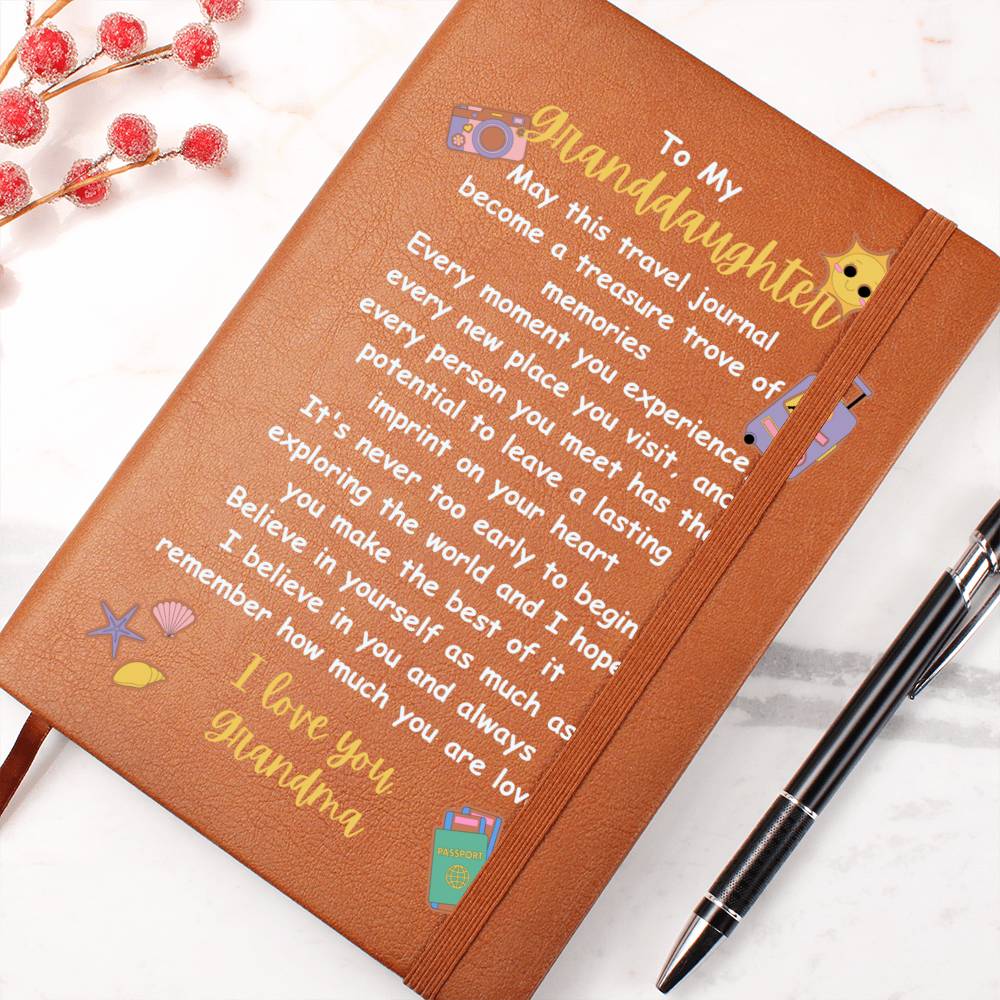 To My
Granddaughter
May this travel journal
become a treasure trove of
memories
Every moment you experience
every new place you visit, and
every person you meet has the
potential to leave a lasting
imprint on your heart
It's never too early to begin
exploring the world and I hope
you make the best of it
Believe in yourself as much as
I believe in you and always
remember how much you are lov
I love you
Grandma
PASSPORT